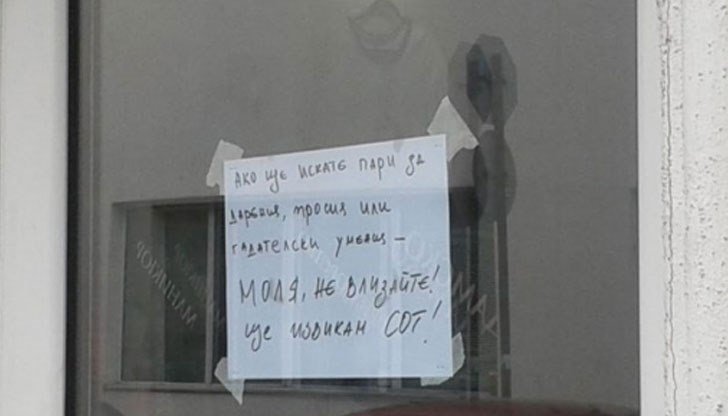 АКО ЩЕ ИСКАТЕ ПАРИ ЗА
ДАРЕНИЯ, ПРОСИЯ ИЛИ
ГАДАТЕЛСКИ УМЕНИЯ –
МОЛЯ, НЕ ВЛИЗАЙТЕ!
ЩЕ ИЗВИКАМ СОТ!
МАНИКЮР